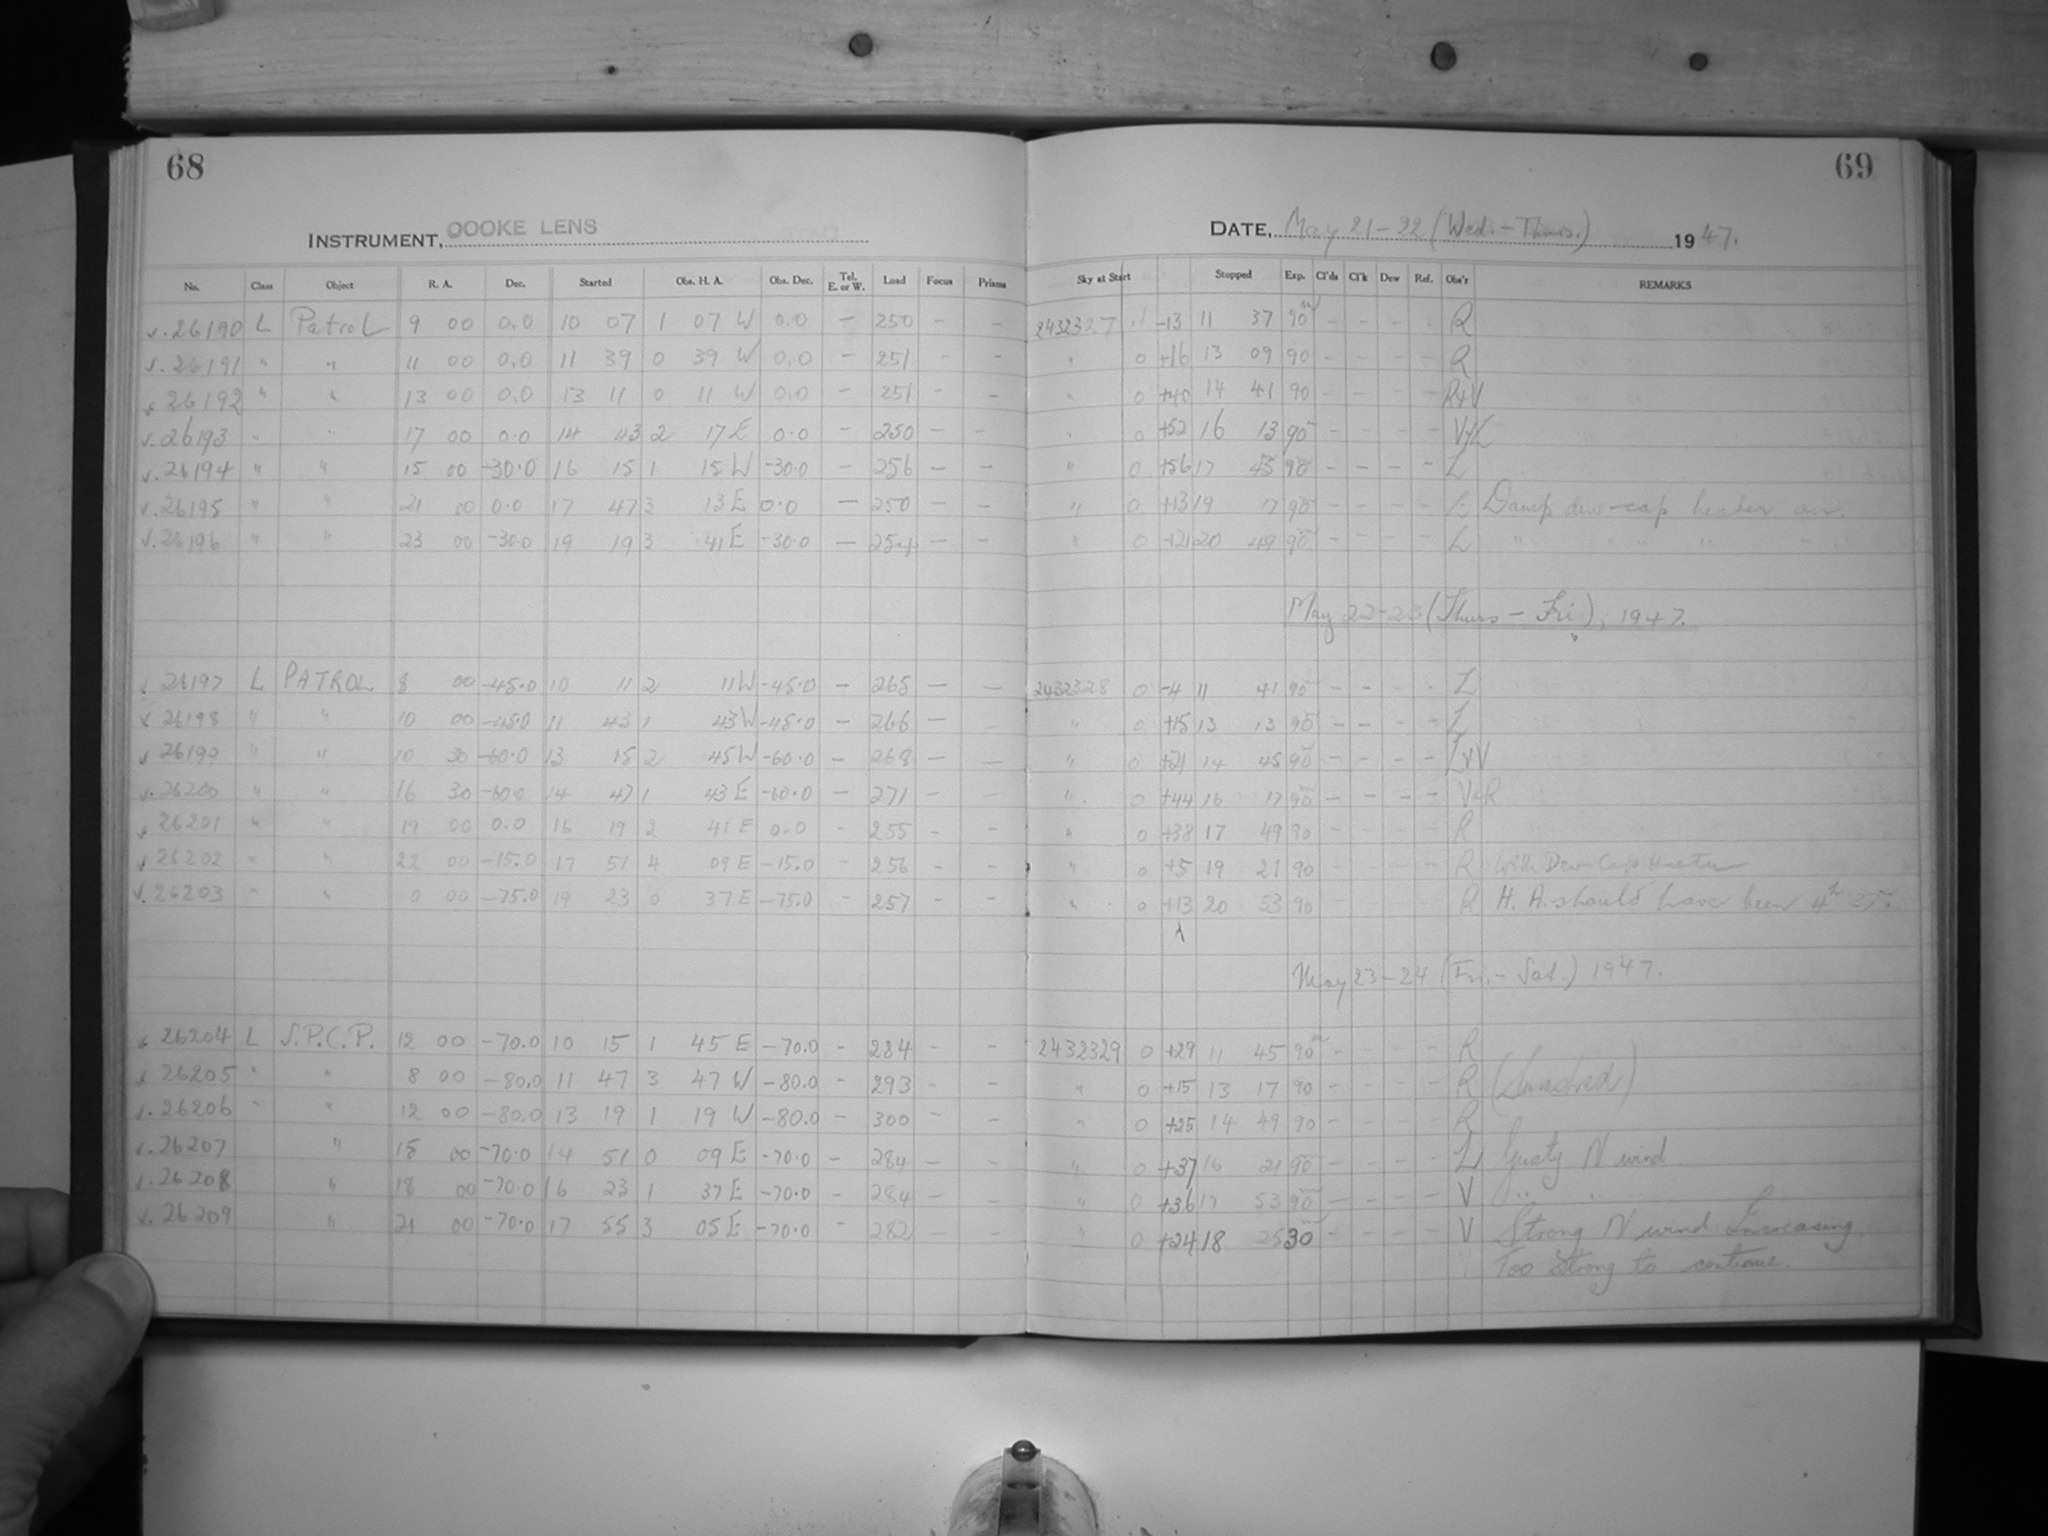 68
69
INSTRUMENT, COOKE LENS
DATE, May 21-22 (Wed.-Thurs.) 1947.
No. Class Object R. A. Dec. Started Obs. H. A. Obs. Dec. Tel. E. or W. Load Focus Prisms Sky at Start Stopped Exp. Cl'ds Cl'k Dew Ref. Obs'r REMARKS
v. 26190 L Patrol 9 00 0.0 10 07 1 07 W 0.0 - 250 - - 2432327 .1 -13 11 37 90m - - - - R
v. 26191 " " 11 00 0.0 11 39 0 39 W 0.0 - 251 - - " 0 +16 13 09 90 - - - - R
v 26192 " " 13 00 0.0 13 11 0 11 W 0.0 - 251 - - " 0 +40 14 41 90 - - - - R+V
v. 26193 " " 17 00 0.0 14 43 2 17 E 0.0 - 250 - - " 0 +52 16 13 90m - - - - V+L
v. 26194 " " 15 00 -30.0 16 15 1 15 W -30.0 - 256 - - " 0 +56 17 45 90m - - - - L
v. 26195 " " 21 00 0.0 17 47 3 13 E 0.0 - 250 - - " 0 +13 19 17 90m - - - - L Damp dew-cap heater on.
v. 26196 " " 23 00 -30.0 19 19 3 41 E -30.0 - 254 - - " 0 +21 20 49 90m - - - - L " " " " " "
May 22-23 (Thurs - Fri), 1947.
v 26197 L PATROL 8 00 -45.0 10 11 2 11 W -45.0 - 265 - - 2432328 0 -4 11 41 90m - - - - L
v 26198 " " 10 00 -45.0 11 43 1 43 W -45.0 - 266 - - " 0 +15 13 13 90m - - - - L
v 26199 " " 10 30 -60.0 13 15 2 45 W -60.0 - 268 - - " 0 +21 14 45 90m - - - - L+V
v. 26200 " " 16 30 -60.0 14 47 1 43 E -60.0 - 271 - - " 0 +44 16 17 90m - - - - V+R
v 26201 " " 19 00 0.0 16 19 2 41 E 0.0 - 255 - - " 0 +38 17 49 90 - - - - R
v 26202 " " 22 00 -15.0 17 51 4 09 E -15.0 - 256 - - " 0 +5 19 21 90 - - - - R With Dew Cap Heater
v. 26203 " " 0 00 -75.0 19 23 0 37 E -75.0 - 257 - - " 0 +13 20 53 90 - - - - R H. A. should have been 4h 37m.
May 23-24 (Fri.- Sat.) 1947.
v 26204 L S.P.C.P. 12 00 -70.0 10 15 1 45 E -70.0 - 284 - - 2432329 0 +29 11 45 90m - - - - R
v 26205 " " 8 00 -80.0 11 47 3 47 W -80.0 - 293 - - " 0 +15 13 17 90 - - - - R (Smashed)
v. 26206 " " 12 00 -80.0 13 19 1 19 W -80.0 - 300 - - " 0 +25 14 49 90 - - - - R
v. 26207 " 15 00 -70.0 14 51 0 09 E -70.0 - 284 - - " 0 +37 16 21 90m - - - - L Gusty N wind
v. 26208 " 18 00 -70.0 16 23 1 37 E -70.0 - 284 - - " 0 +36 17 53 90m - - - - V " "
v. 26209 " 21 00 -70.0 17 55 3 05 E -70.0 - 282 - - " 0 +24 18 25 30m - - - - V Strong N wind Increasing.
Too Strong to continue.